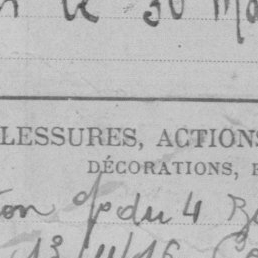 le 30 Ma
LESSURES, ACTIONS
DÉCORATIONS,
ion du 4
13/11/16